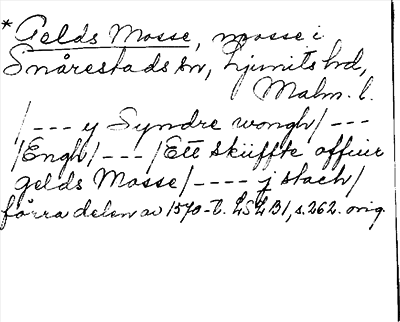 * Gelds Mosse, mosse i
Snårestads sn, Ljunits hd,
Malm. l.
/--- y Syndre wongh/---
/Engh/---/Ett skiffte offuer
gelds Mosse/---- j stach/
förra delen av 1570-t. LSLB1, s.262. orig.